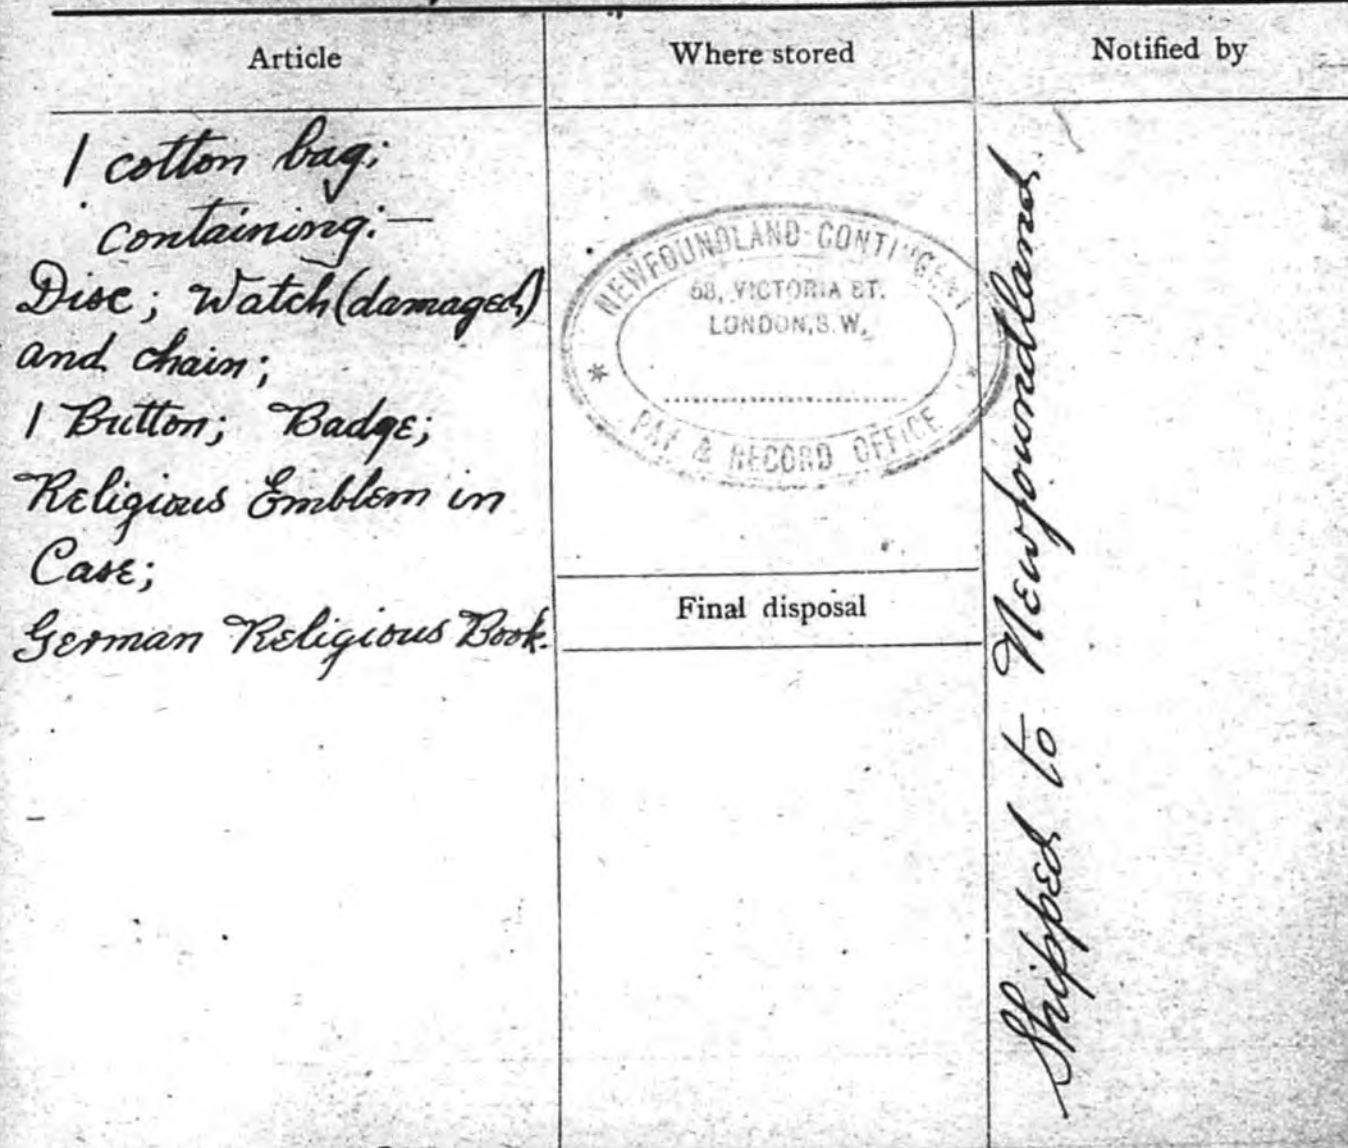 Article
Where stored
Notified by
1 cotton bag;
containing:—
Disc; Watch (damaged)
and chain;
1 Button; Badge;
Religious Emblem in
Case;
German Religious Book.
NEWFOUNDLAND CONTINGENT
58, VICTORIA ST.
LONDON, S.W.
PAY & RECORD OFFICE
Final disposal
Shipped to Newfoundland.